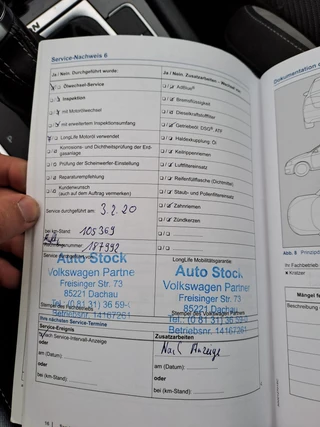 Service-Nachweis 6
Ja / Nein: Durchgeführt wurde:
Ölwechsel-Service
Inspektion
mit Motorölwechsel
mit erweitertem Inspektionsumfang
LongLife Motoröl verwendet
Korrosions- und Dichtheitsprüfung der Erdgasanlage
Prüfung der Scheinwerfer-Einstellung
Reparaturempfehlung
Kundenwunsch
(auch auf dem Auftrag vermerken)
Service durchgeführt am: 3.2.20
bei km-Stand: 105369
187992
Ja / Nein: Zusatzarbeiten
AdBlue®
Bremsflüssigkeit
Dieselkraftstofffilter
Getriebeöl: DSG®, ATV
Haldexkupplung: Öl
Keilrippenriemen
Luftfiltereinsatz
Reifenfüllflasche (Dichtmittel)
Staub- und Pollenfiltereinsatz
Zahnriemen
Zündkerzen
LongLife Mobilitätsgarantie:
Auto Stock
Volkswagen Partne
Freisinger Str. 73
85221 Dachau
Tel. (0 81 31) 36 59-
Betriebsnr. 14167261
Auto Stock
Volkswagen Partner
Freisinger Str. 73
85221 Dachau
Tel. (0 81 31) 36 59-
Betriebsnr. 14167261
Stempel des Volkswagen Partners
Ihre nächsten Service-Termine
Service-Ereignis
nach Service-Intervall-Anzeige
oder
am (Datum):
oder
bei (km-Stand):
Zusatzarbeiten
Nach Anzeige
am (Datum):
oder
bei (km-Stand):
16
Dokumentation
Abb. 8
Prinzipd
Ihr Fachbetrieb
Kratzer
Mängel
Beschreibung